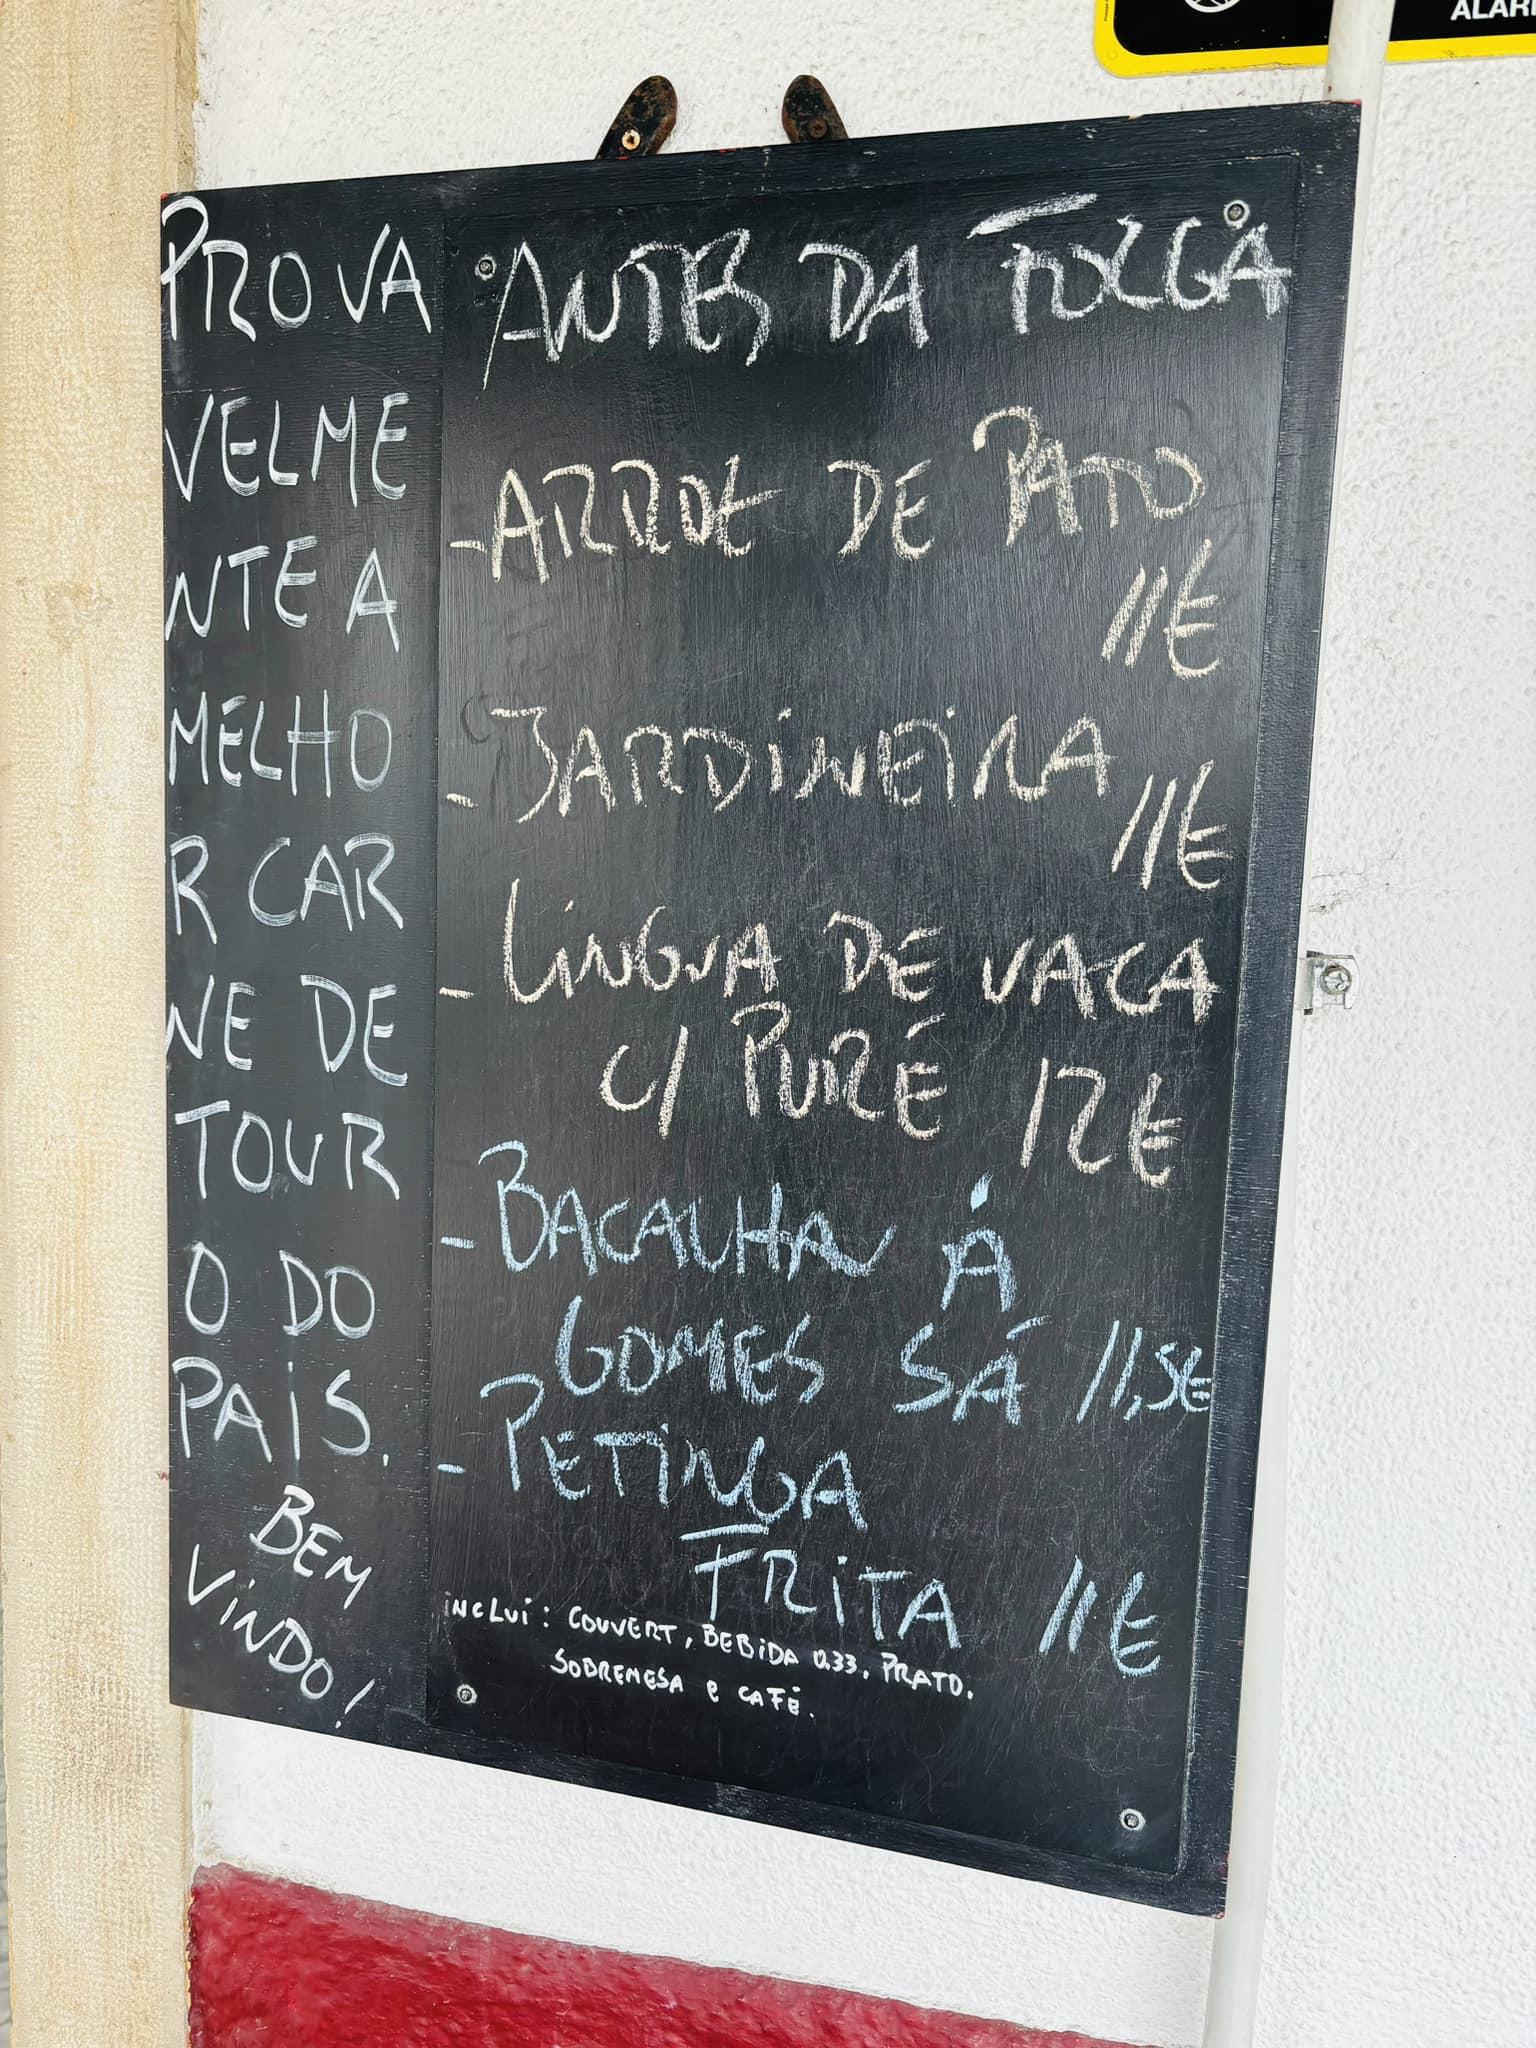 PROVA
VELME
NTE A
MELHO
R CAR
NE DE
TOUR
O DO
PAÍS.
BEM
VINDO!
ANTES DA FOLGA
- ARROZ DE PATO
11€
- JARDINEIRA 11€
- LÍNGUA DE VACA
C/ PURÉ 12€
- BACALHAU À
GOMES SÁ 11,5€
- PETINGA
FRITA 11€
INCLUI: COUVERT, BEBIDA 0.33. PRATO.
SOBREMESA e CAFÉ.